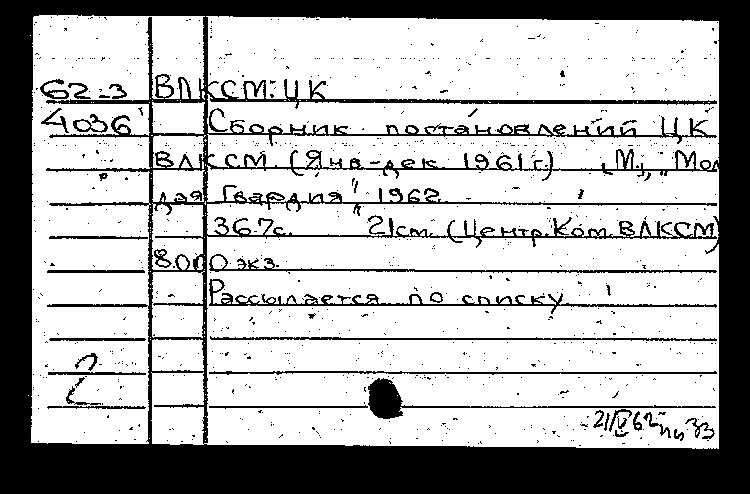 62-3 ВЛКСМ. ЦК
4036 Сборник постановлений ЦК
ВЛКСМ. (Янв-дек. 1961г) М., „Мол
дая Гвардия" 1962.
367с. 21см. (Центр. Ком. ВЛКСМ)
8.000 экз.
Рассылается по списку
2
21/V 62